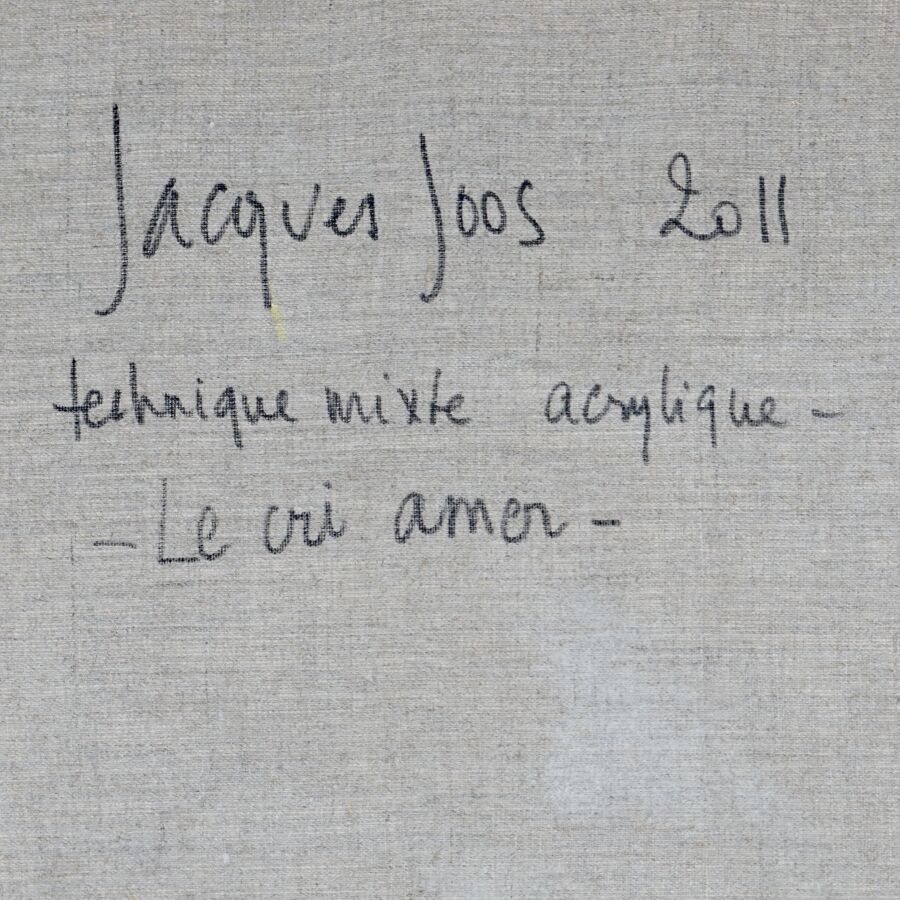 Jacques Joos 2011
technique mixte acrylique -
- Le cri amer -